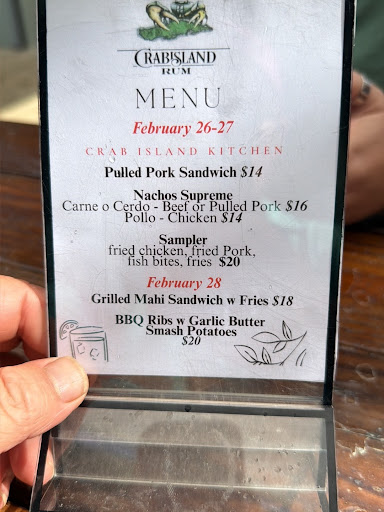 CRABISLAND
RUM
MENU
February 26-27
CRAB ISLAND KITCHEN
Pulled Pork Sandwich $14
Nachos Supreme
Carne o Cerdo - Beef or Pulled Pork $16
Pollo - Chicken $14
Sampler
fried chicken, fried Pork,
fish bites, fries $20
February 28
Grilled Mahi Sandwich w Fries $18
BBQ Ribs w Garlic Butter
Smash Potatoes
$20